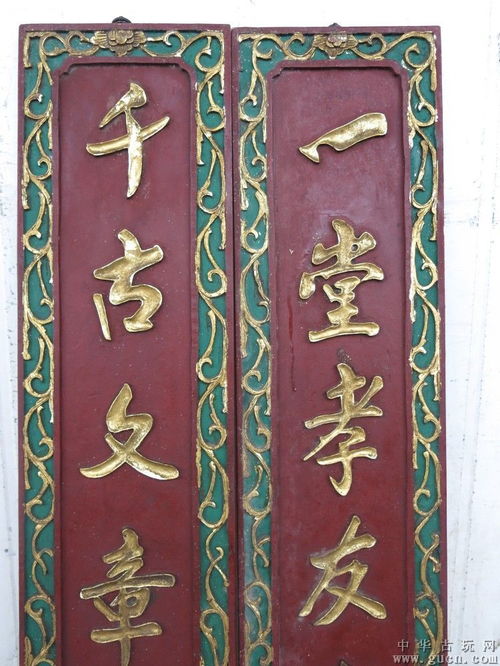 一堂孝友
千古文章
中华古玩网
www.gucn.com